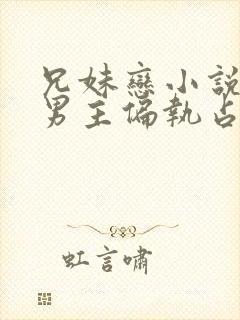 兄妹戀小說
男主偏執占
虹言嘯